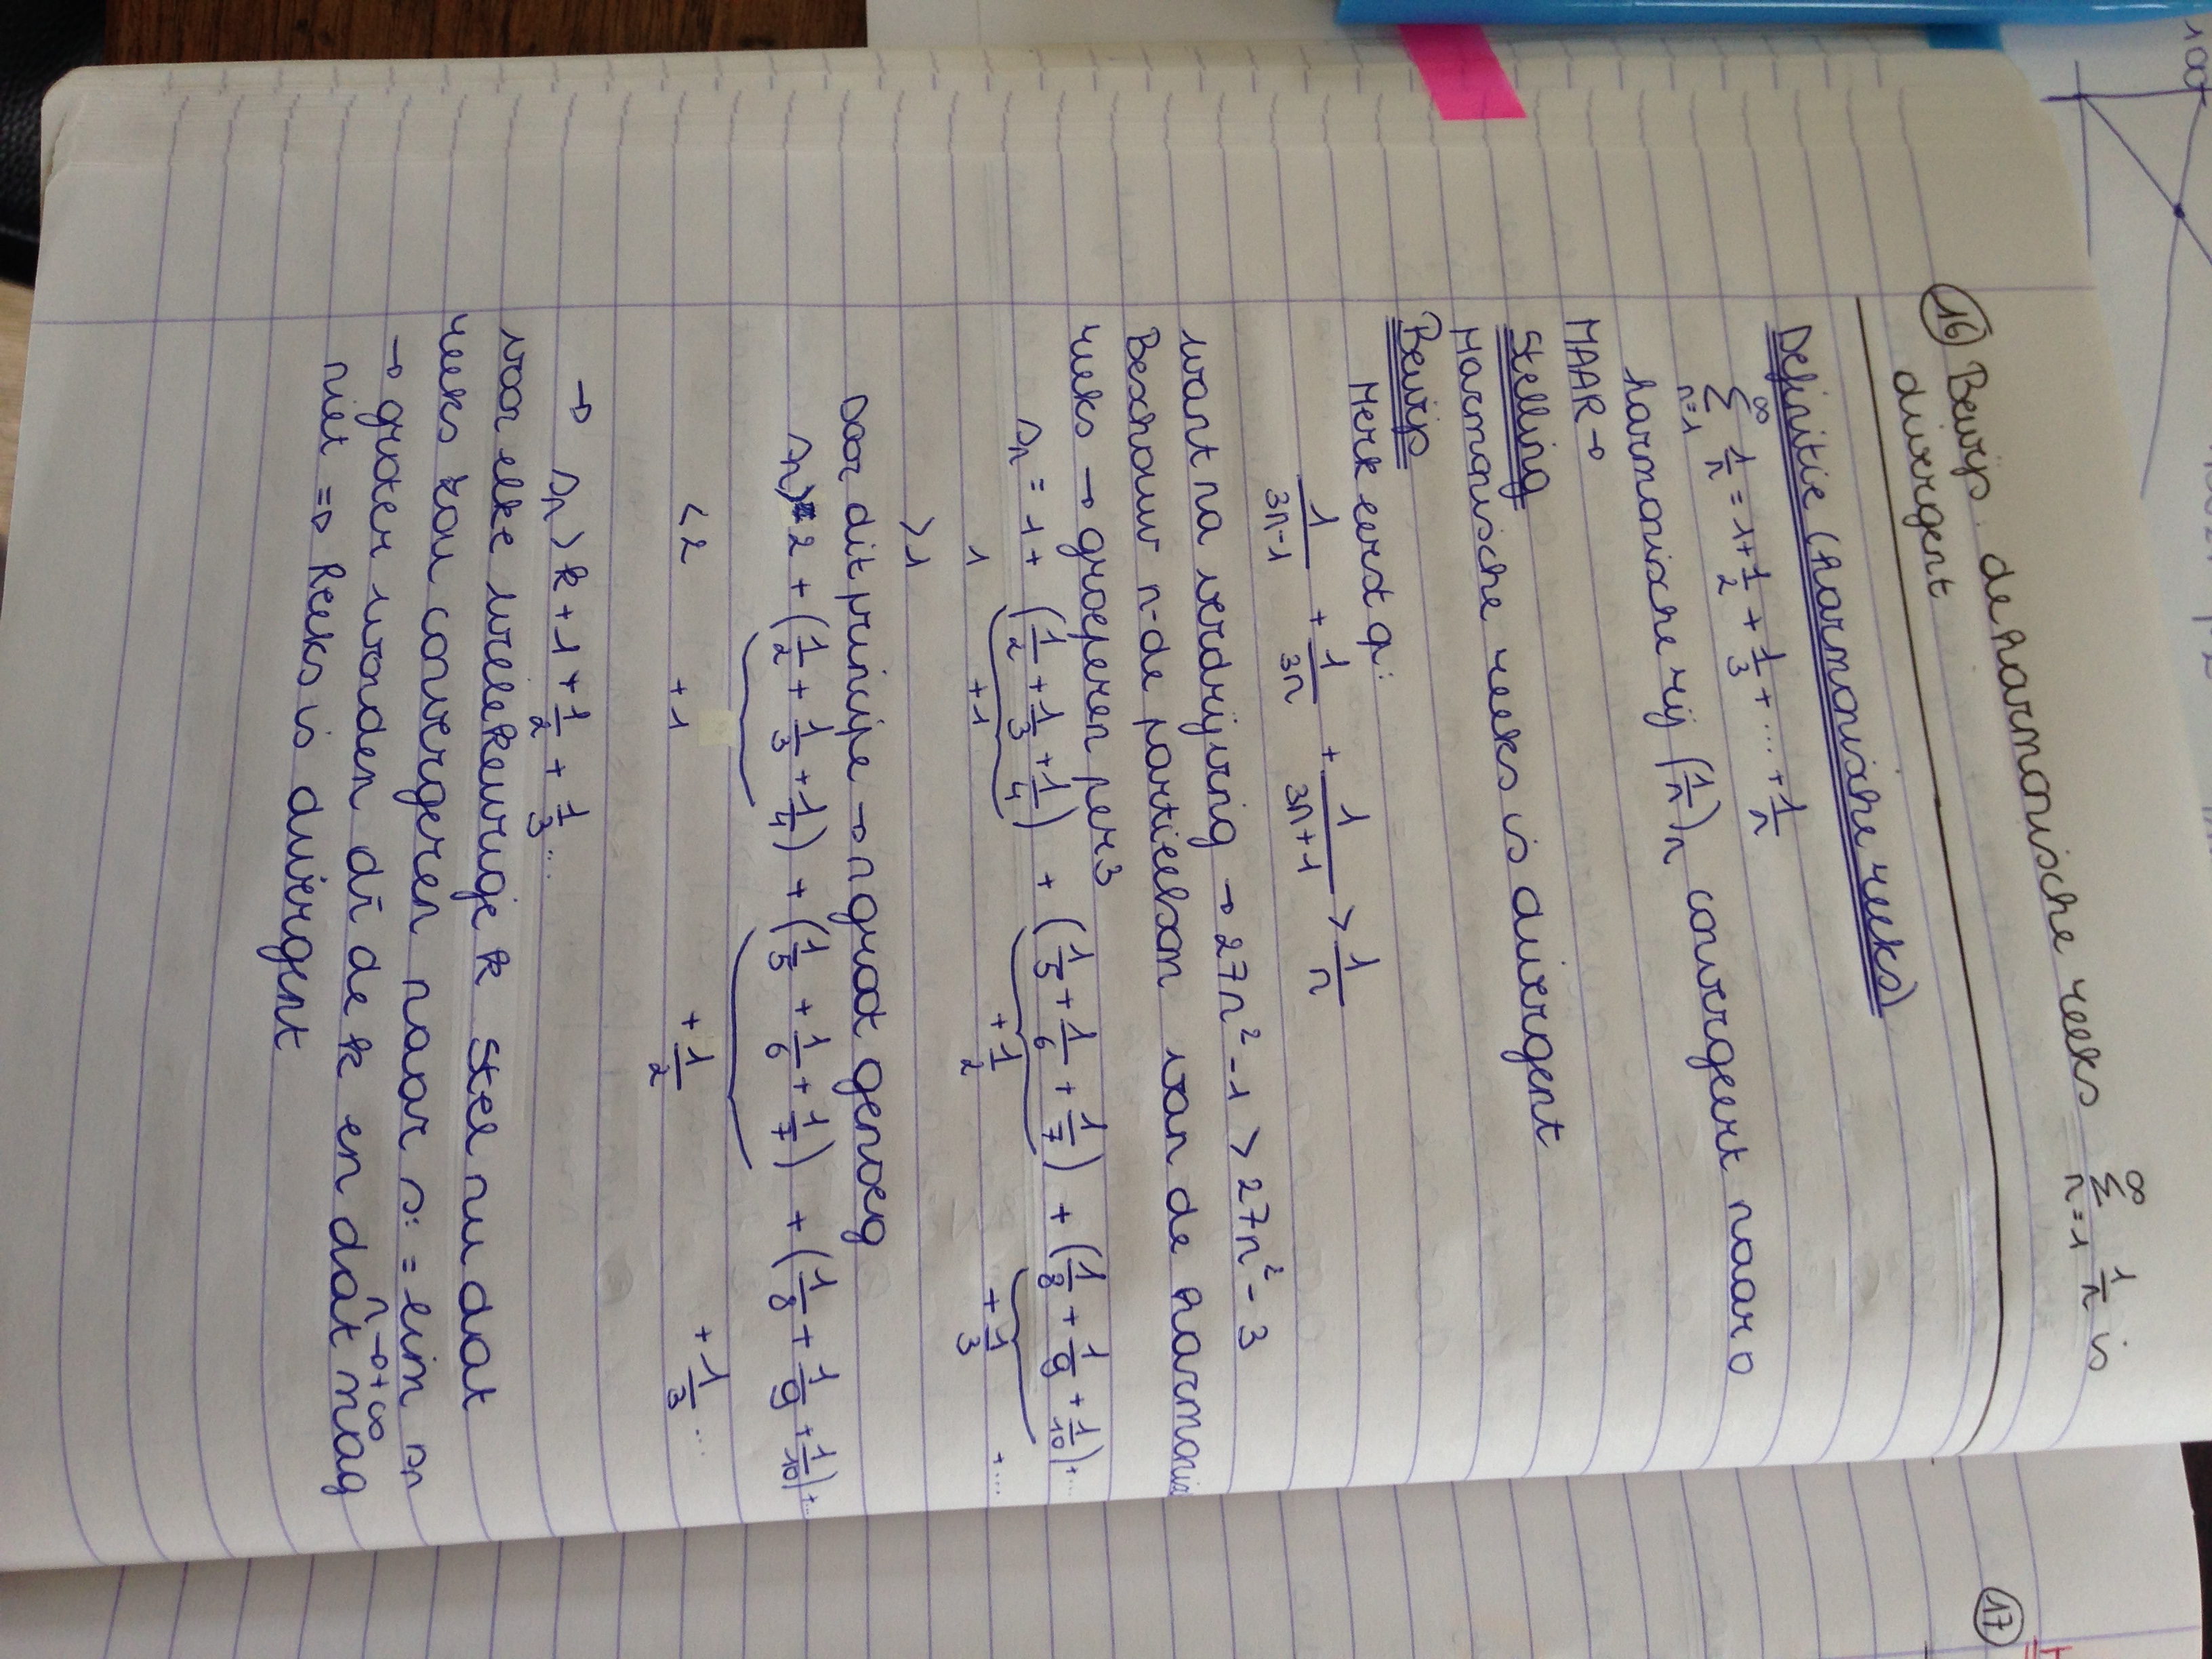 16 Bewijs. de harmonische reeks ∞ Σ n=1 1/n is
divergent
Definitie (harmonische reeks)
∞ Σ n=1 1/n = 1 + 1/2 + 1/3 + .... + 1/n
harmonische rij (1/n)n convergeert naar 0
MAAR →
Stelling
Harmonische reeks is divergent
Bewijs
Merk eerst op:
1/(3n-1) + 1/3n + 1/(3n+1) > 1/n
want na verdrijving → 27n² - 1 > 27n² - 3
Beschouw n-de partieelsom van de harmonische
reeks → groeperen per 3
sn = 1 + (1/2 + 1/3 + 1/4) + (1/5 + 1/6 + 1/7) + (1/8 + 1/9 + 1/10) + ...
1 +1 + 1/2 + 1/3 + ....
>1
Door dit principe → n groot genoeg
sn > 2 + (1/2 + 1/3 + 1/4) + (1/5 + 1/6 + 1/7) + (1/8 + 1/9 + 1/10) + ...
<2 +1 + 1/2 + 1/3 ...
→ sn > k + 1 + 1/2 + 1/3 ...
voor elke willekeurige k Stel nu dat
reeks zou convergeren naar s: = lim n→+∞ sn
→ groter worden d̄ de k en dat mag
niet ⇒ Reeks is divergent
17
100